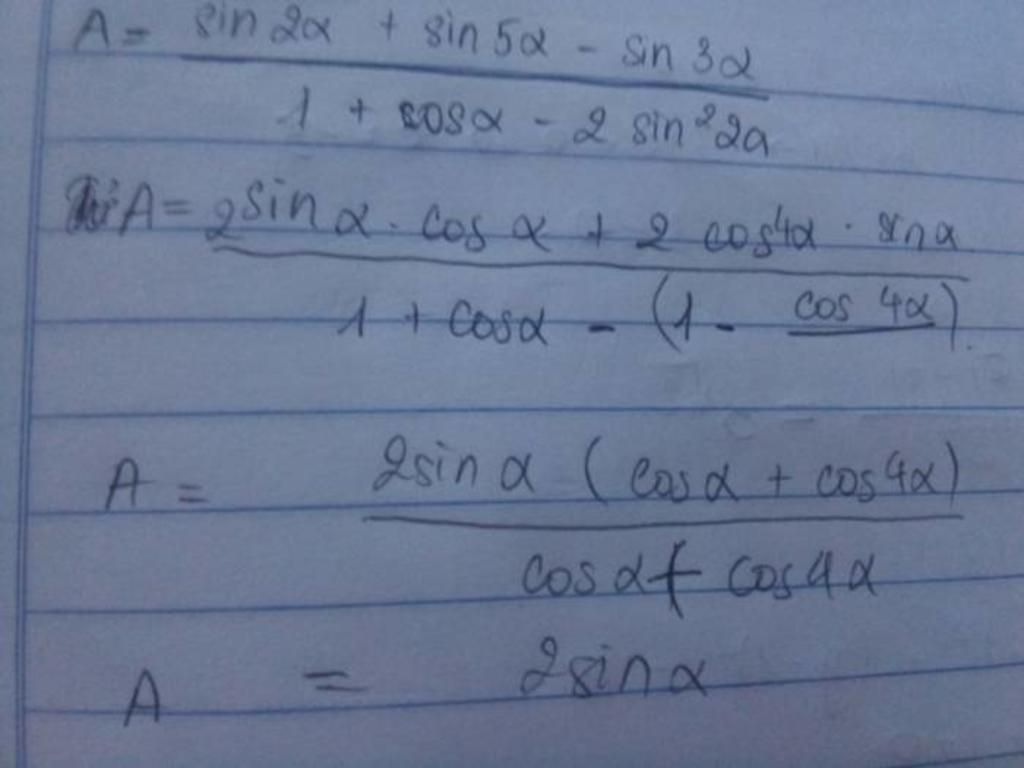 A = sin 2α + sin 5α - sin 3α
1 + cosα - 2 sin² 2a
A = 2 sin α . cos α + 2 cos4α . sinα
1 + cosα - (1 - cos 4α)
A = 2sin α ( cosα + cos4α)
cosα + cos4α
A = 2sinα